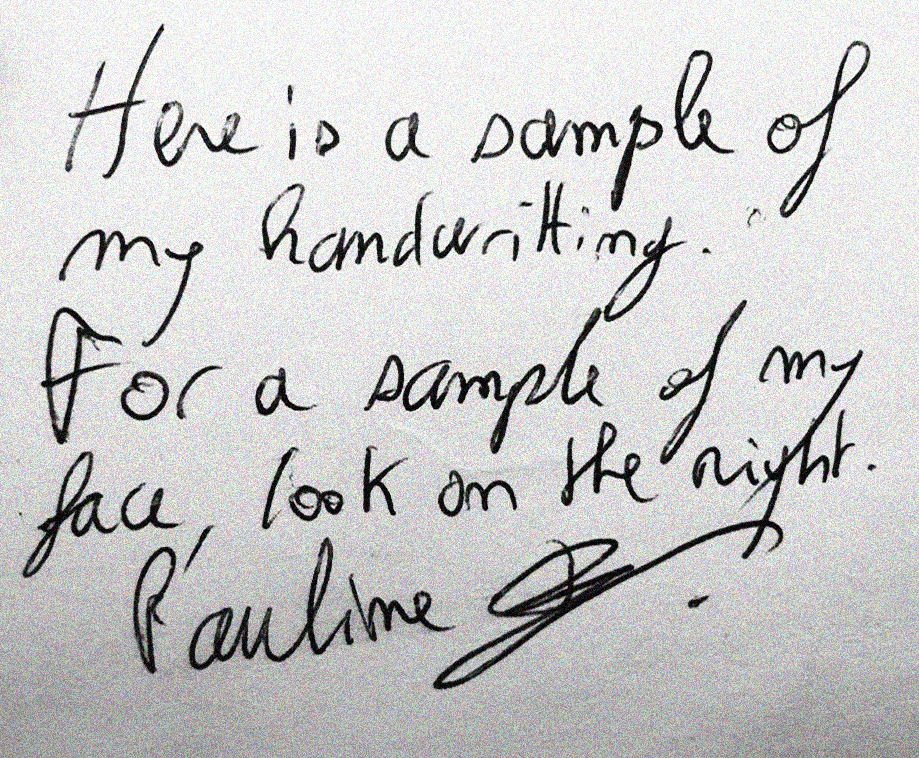 Here is a sample of
my handwritting.
For a sample of my
face, look on the right.
Pauline